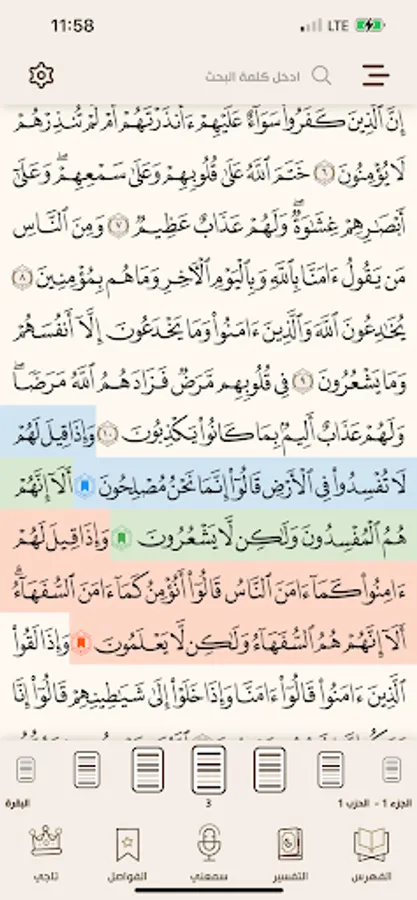 11:58 LTE
ادخل كلمة البحث
إِنَّ ٱلَّذِينَ كَفَرُوا۟ سَوَآءٌ عَلَيْهِمْ ءَأَنذَرْتَهُمْ أَمْ لَمْ تُنذِرْهُمْ
لَا يُؤْمِنُونَ ٦ خَتَمَ ٱللَّهُ عَلَىٰ قُلُوبِهِمْ وَعَلَىٰ سَمْعِهِمْ ۖ وَعَلَىٰٓ
أَبْصَٰرِهِمْ غِشَٰوَةٌ ۖ وَلَهُمْ عَذَابٌ عَظِيمٌ ٧ وَمِنَ ٱلنَّاسِ
مَن يَقُولُ ءَامَنَّا بِٱللَّهِ وَبِٱلْيَوْمِ ٱلْءَاخِرِ وَمَا هُم بِمُؤْمِنِينَ ٨
يُخَٰدِعُونَ ٱللَّهَ وَٱلَّذِينَ ءَامَنُوا۟ وَمَا يَخْدَعُونَ إِلَّآ أَنفُسَهُمْ
وَمَا يَشْعُرُونَ ٩ فِى قُلُوبِهِم مَّرَضٌ فَزَادَهُمُ ٱللَّهُ مَرَضًا ۖ
وَلَهُمْ عَذَابٌ أَلِيمٌۢ بِمَا كَانُوا۟ يَكْذِبُونَ ١٠ وَإِذَا قِيلَ لَهُمْ
لَا تُفْسِدُوا۟ فِى ٱلْأَرْضِ قَالُوٓا۟ إِنَّمَا نَحْنُ مُصْلِحُونَ أَلَآ إِنَّهُمْ
هُمُ ٱلْمُفْسِدُونَ وَلَٰكِن لَّا يَشْعُرُونَ وَإِذَا قِيلَ لَهُمْ
ءَامِنُوا۟ كَمَآ ءَامَنَ ٱلنَّاسُ قَالُوٓا۟ أَنُؤْمِنُ كَمَآ ءَامَنَ ٱلسُّفَهَآءُ ۗ
أَلَآ إِنَّهُمْ هُمُ ٱلسُّفَهَآءُ وَلَٰكِن لَّا يَعْلَمُونَ وَإِذَا لَقُوا۟
ٱلَّذِينَ ءَامَنُوا۟ قَالُوٓا۟ ءَامَنَّا وَإِذَا خَلَوْا۟ إِلَىٰ شَيَٰطِينِهِمْ قَالُوٓا۟ إِنَّا
الجزء 1 - الحزب 1 3 البقرة
الفهرس التفسير سمعني الفواصل تاجي